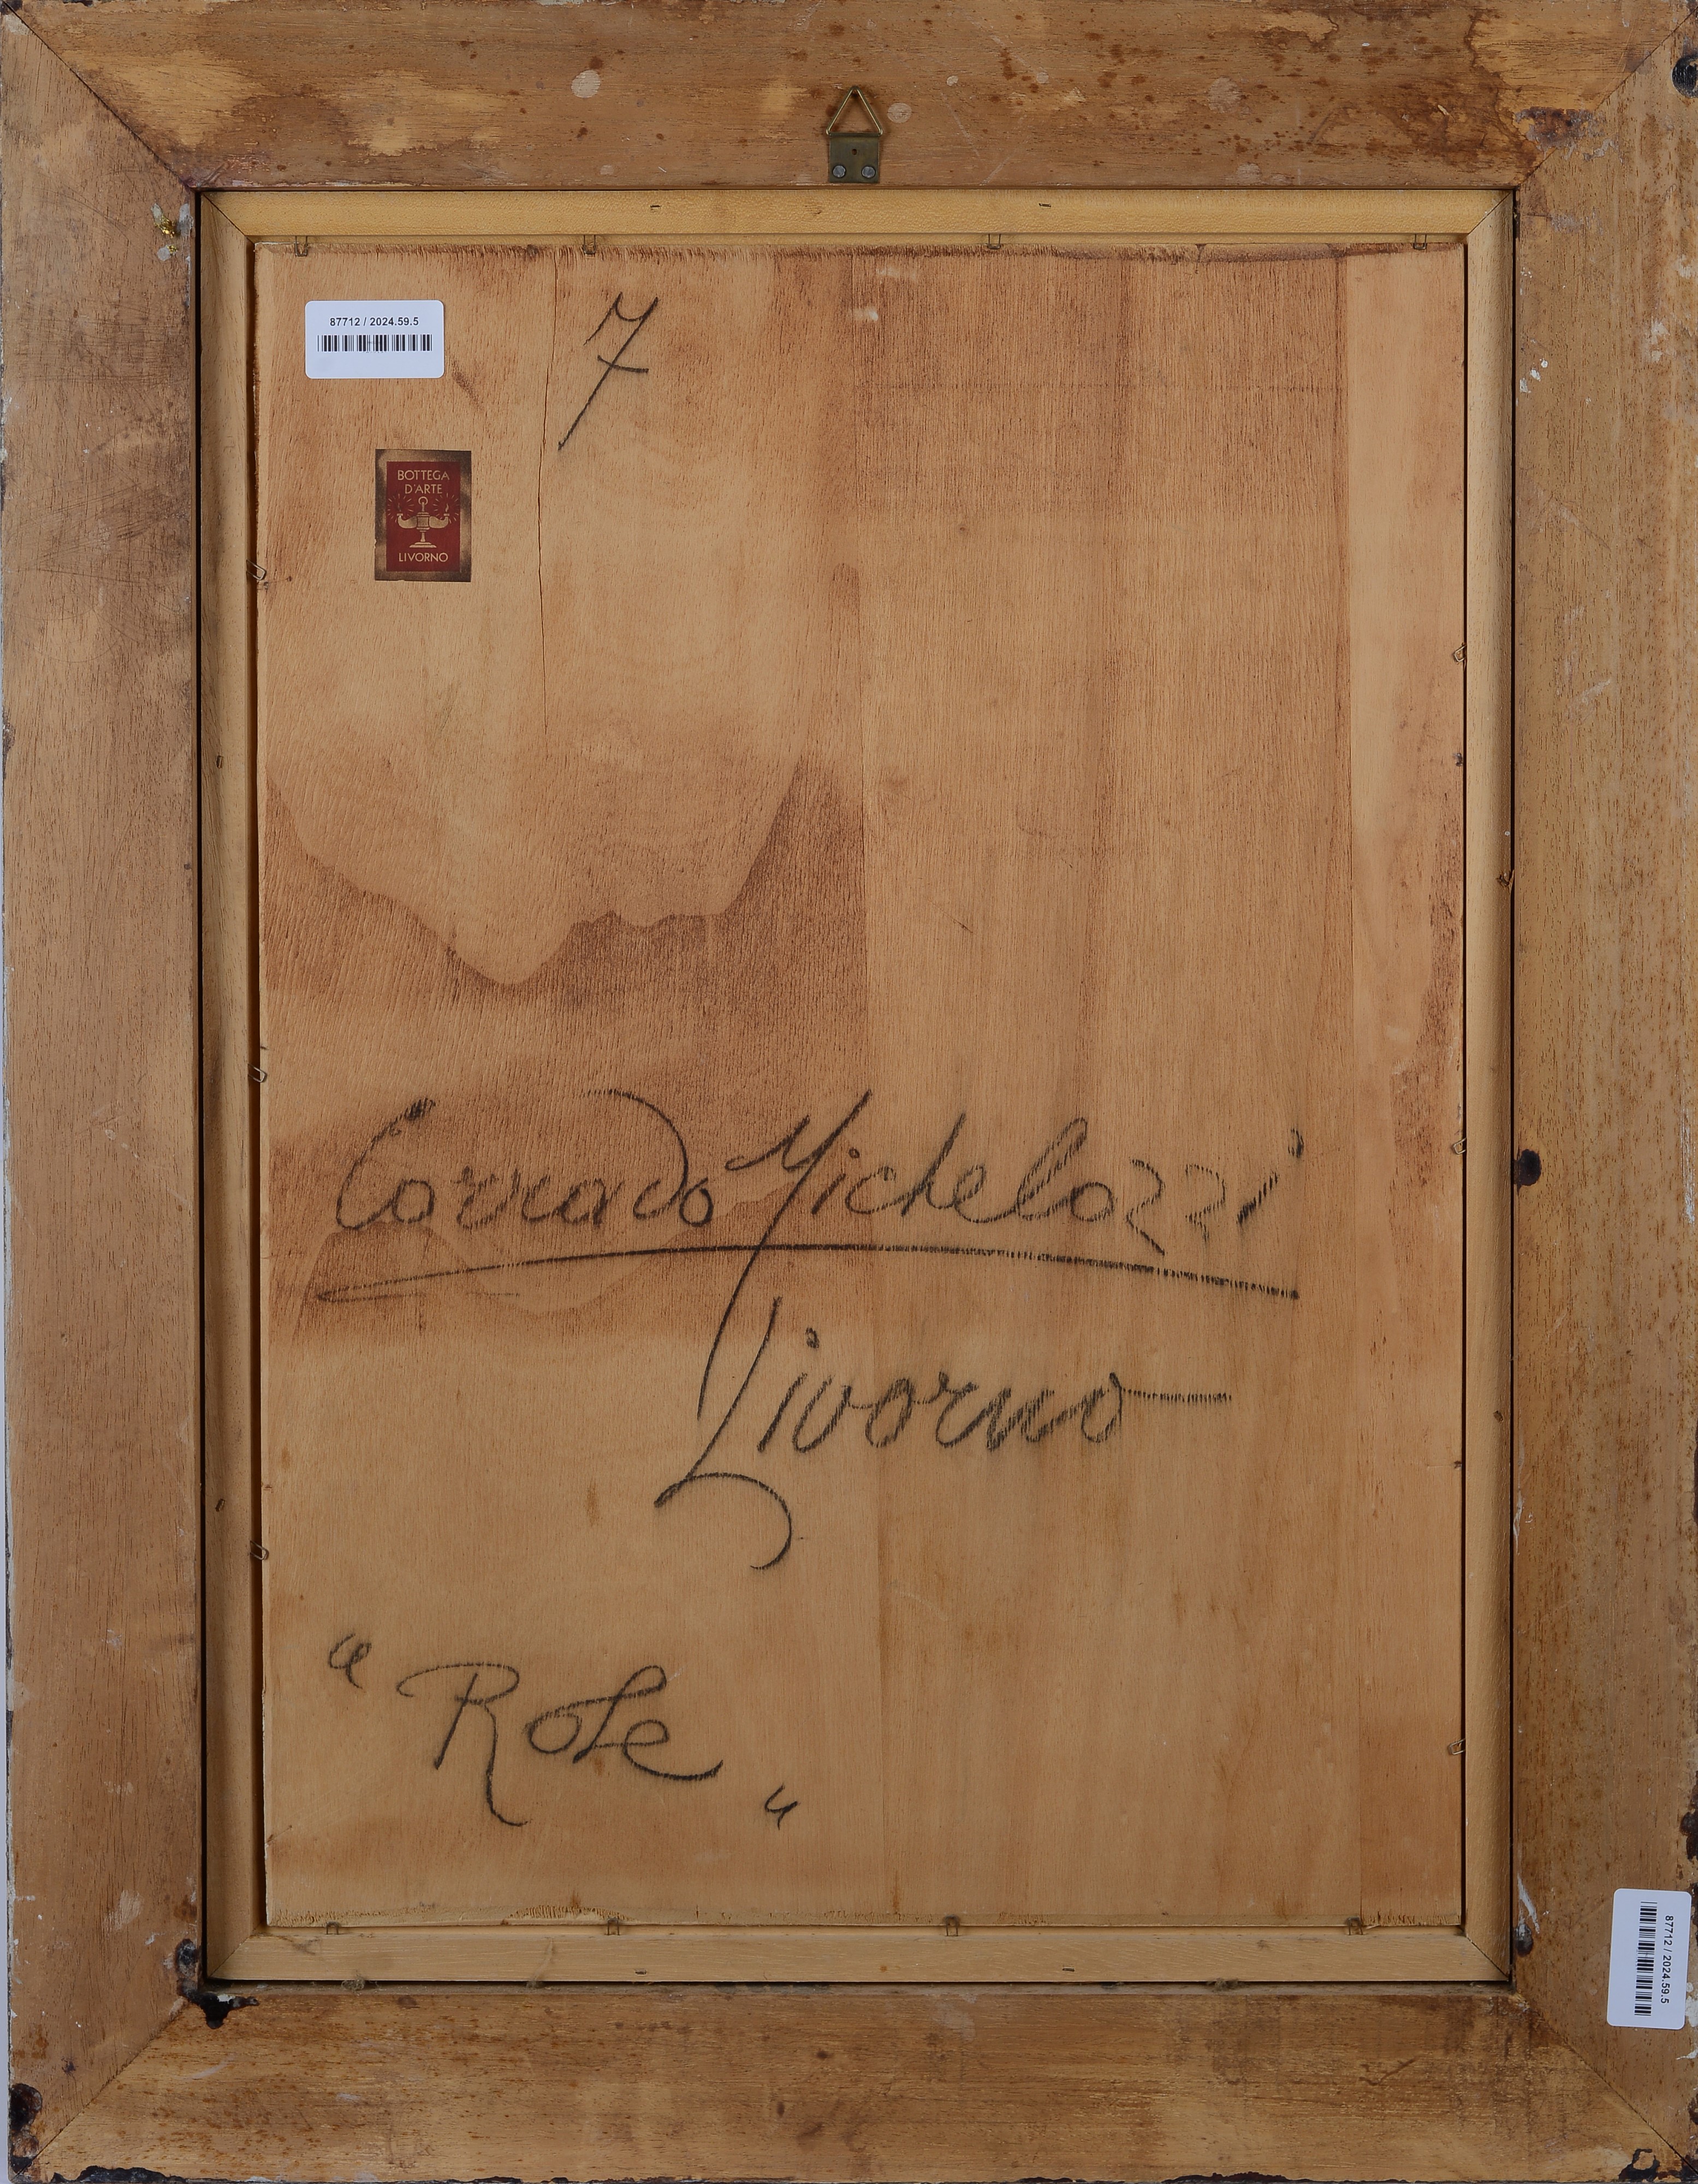 87712 / 2024.59.5
7
BOTTEGA
D'ARTE
LIVORNO
Corrado Michelozzi
Livorno
" Rose "
87712 / 2024.59.5